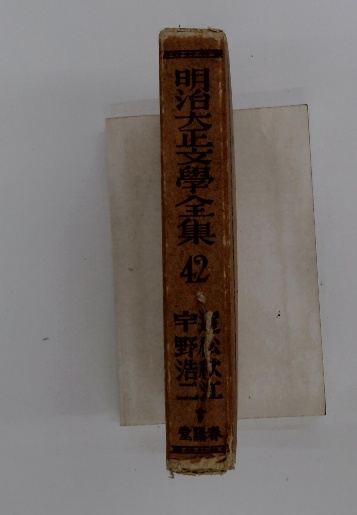 明治大正文學全集
42
近松秋江
宇野浩二
春陽堂